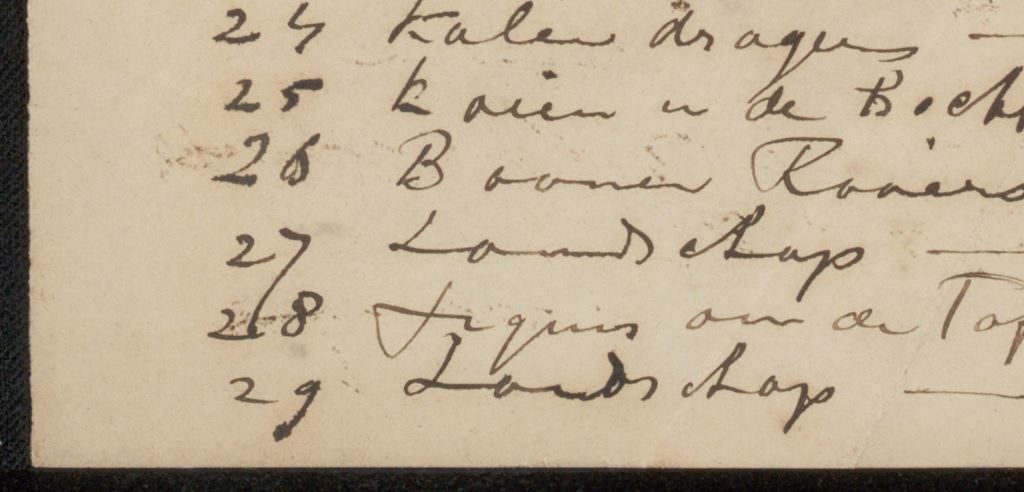 24 Kolen dragers —
25 Koeien in de Bocht
26 Boomen Rooiers
27 Landschap —
28 Figuur om de Taf
29 Landschap —